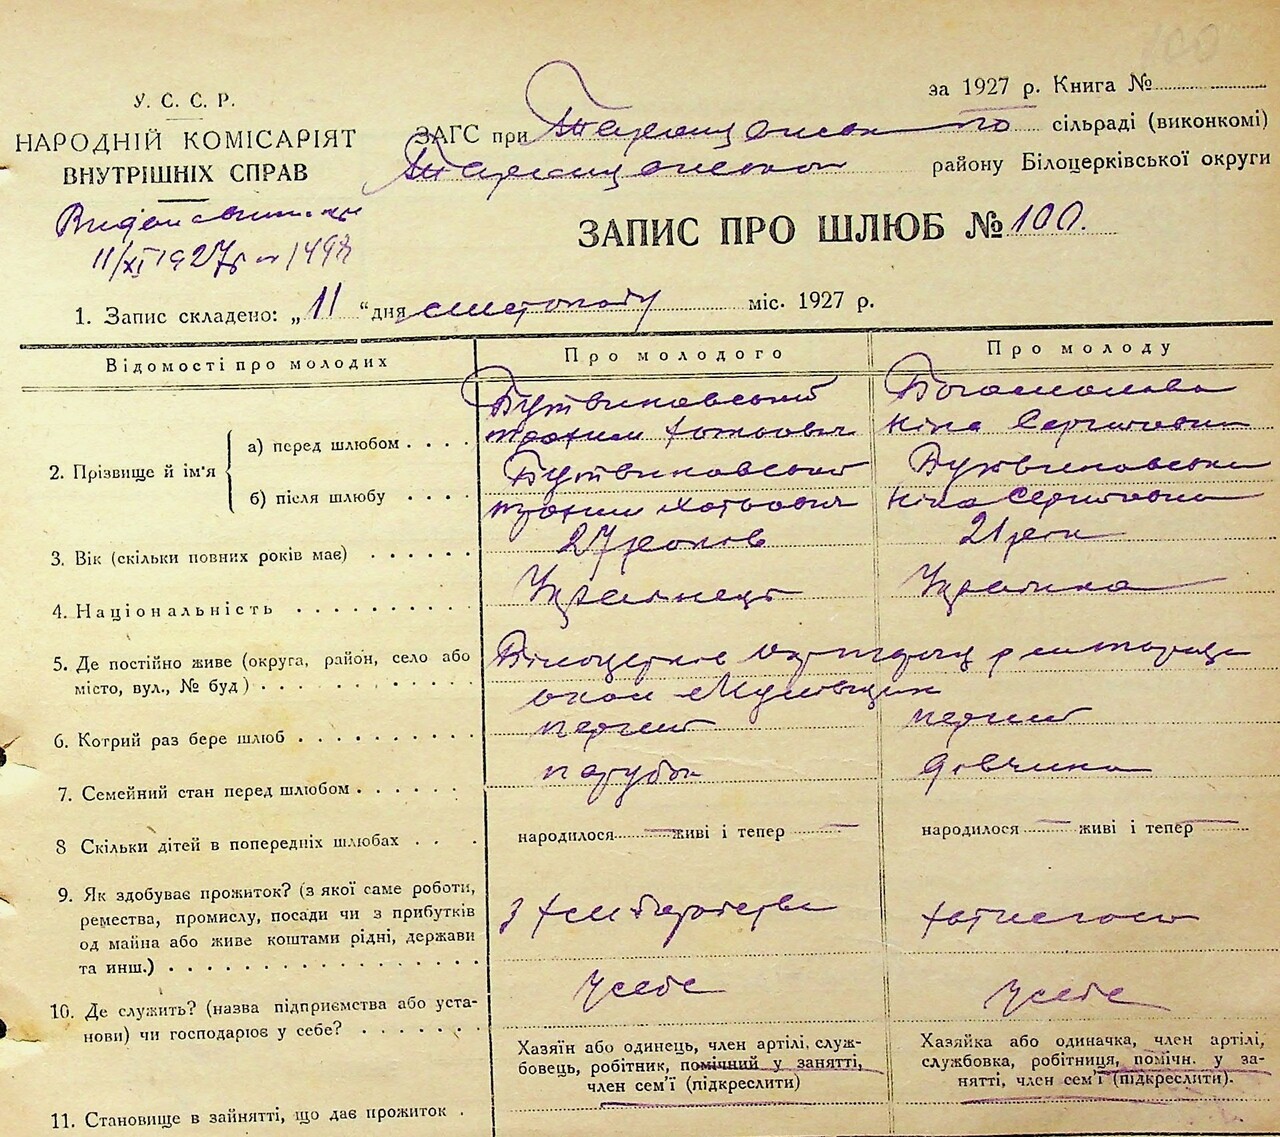 за 1927 р. Книга №
У. С. С. Р.
НАРОДНІЙ КОМІСАРІЯТ
ВНУТРІШНІХ СПРАВ
ЗАГС при Таращанському сільраді (виконкомі)
Таращанського району Білоцерківської округи
11/XI 1927 р
ЗАПИС ПРО ШЛЮБ № 100.
1. Запис складено: „ 11 “ дня листопаду міс. 1927 р.
Відомості про молодих
Про молодого
Про молоду
2. Прізвище й ім'я
а) перед шлюбом . . . .
Бутвиновський
Трохим
Богомолова
Ніна Сергіївна
б) після шлюбу . . . .
Бутвиновський
Трохим
Бутвиновська
Ніна Сергіївна
3. Вік (скільки повних років має) . . . . . .
27 років
21 рік
4. Національність . . . . . . . . . .
Українець
Українка
5. Де постійно живе (округа, район, село або
місто, вул., № буд) . . . . . . . . . . . .
Білоцерків
6. Котрий раз бере шлюб . . . . . . . . . .
перший
перший
7. Семейний стан перед шлюбом . . . . . .
парубок
дівчина
8 Скільки дітей в попередніх шлюбах . . .
народилося — живі і тепер —
народилося — живі і тепер —
9. Як здобуває прожиток? (з якої саме роботи,
ремества, промислу, посади чи з прибутків
од майна або живе коштами рідні, держави
та инш.) . . . . . . . . . . . . . . . . .
з хліборобства
10. Де служить? (назва підприємства або уста-
нови) чи господарює у себе? . . . . . . .
у себе
у себе
Хазяїн або одинець, член артілі, служ-
бовець, робітник, помічний у занятті,
член сем'ї (підкреслити)
Хазяйка або одиначка, член артілі,
службовка, робітниця, помічн. у за-
нятті, член сем'ї (підкреслити).
11. Становище в зайнятті, що дає прожиток .